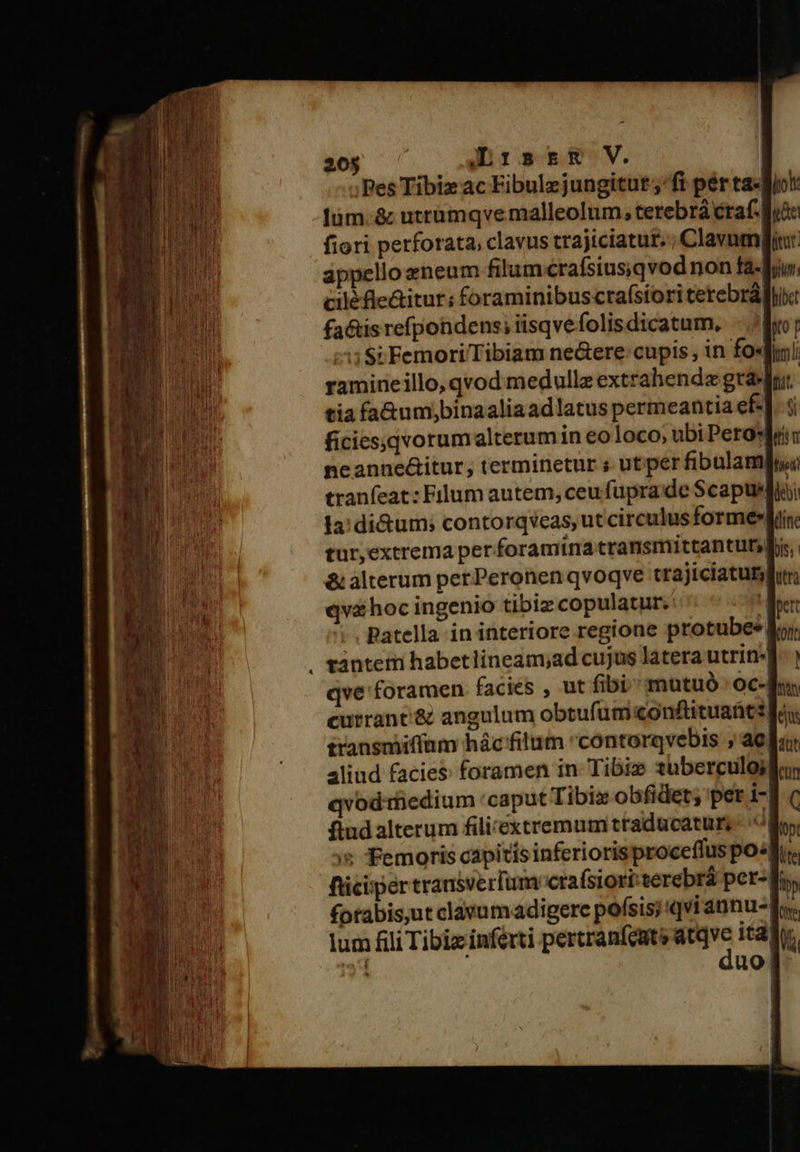 208 LIBER V.
Pes Tibiæ ac Fibulæ jungitur, si per ta-
lum & utrumqve malleolum, terebrâ craf-
siori perforata, clavus trajiciatur. Clavum
appello æneum filum crassius, qvod non fa-
cilè flectitur; foraminibus crassiori terebrâ
factis respondens, iisqve solis dicatum.
Si Femori Tibiam nectere cupis, in fo-
ramine illo, qvod medullæ extrahendæ gra-
tia factum, bina alia ad latus permeantia ef-
ficies, qvorum alterum in eo loco, ubi Pero-
ne annectitur, terminetur; ut per fibulam
transeat: Filum autem, ceu supra de Scapu-
la dictum, contorqveas, ut circulus forme-
tur, extrema per foramina transmittantur,
& alterum per Peronen qvoqve trajiciatur,
qvæ hoc ingenio tibiæ copulatur.
Patella in interiore regione protube-
rantem habet lineam, ad cujus latera utrin-
qve foramen facies, ut sibi mutuò oc-
currant & angulum obtusum constituant:
transmissum hâc filum contorqvebis, ac
aliud facies foramen in Tibiæ tuberculo,
qvod medium caput Tibiæ obsidet, per i-
stud alterum fili extremum traducatur.
Femoris capitis inferioris processus po-
stici per transversum crassiori terebrâ per-
forabis, ut clavum adigere possis, qvi annu-
lum fili Tibiæ inserti pertranseat, atqve ita
duo